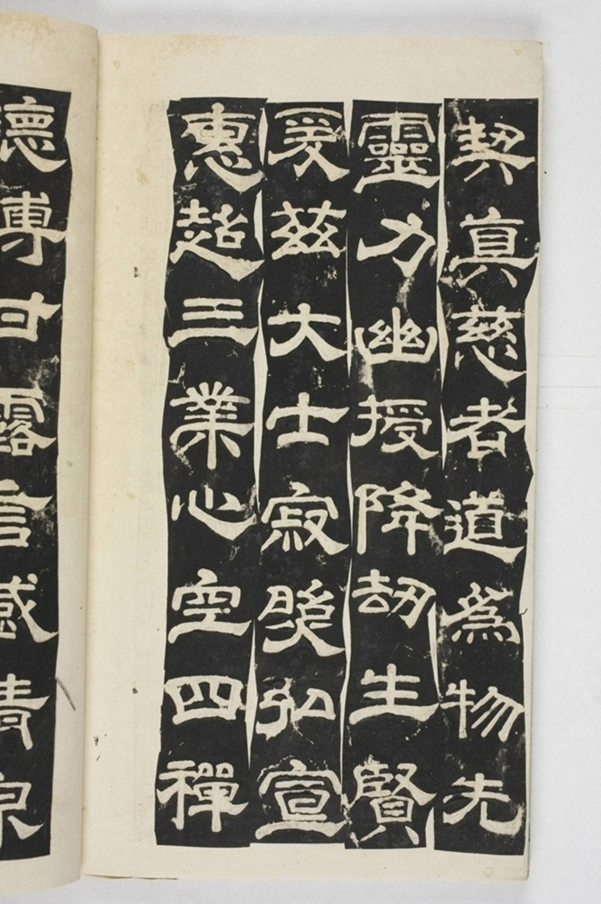 契真慈者道為物先
靈力幽授降劫生賢
爰茲大士寂弘宣
惠超三業心空四禪
德博甘露言感清泉